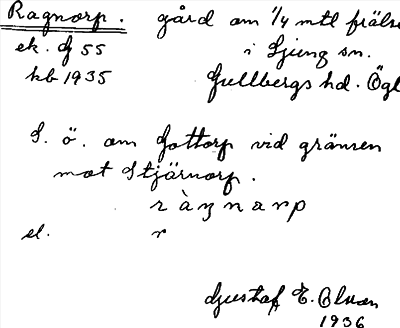 Ragnorp. gård om 1/4 mtl frälse
ek. J 55 i Ljung sn.
kb 1935 Gullbergs hd. Ögl
S. ö. om Gottorp vid gränsen
mot Stjärnorp.
ràŋnarp
el. r
Gustaf E. Olsson
1936